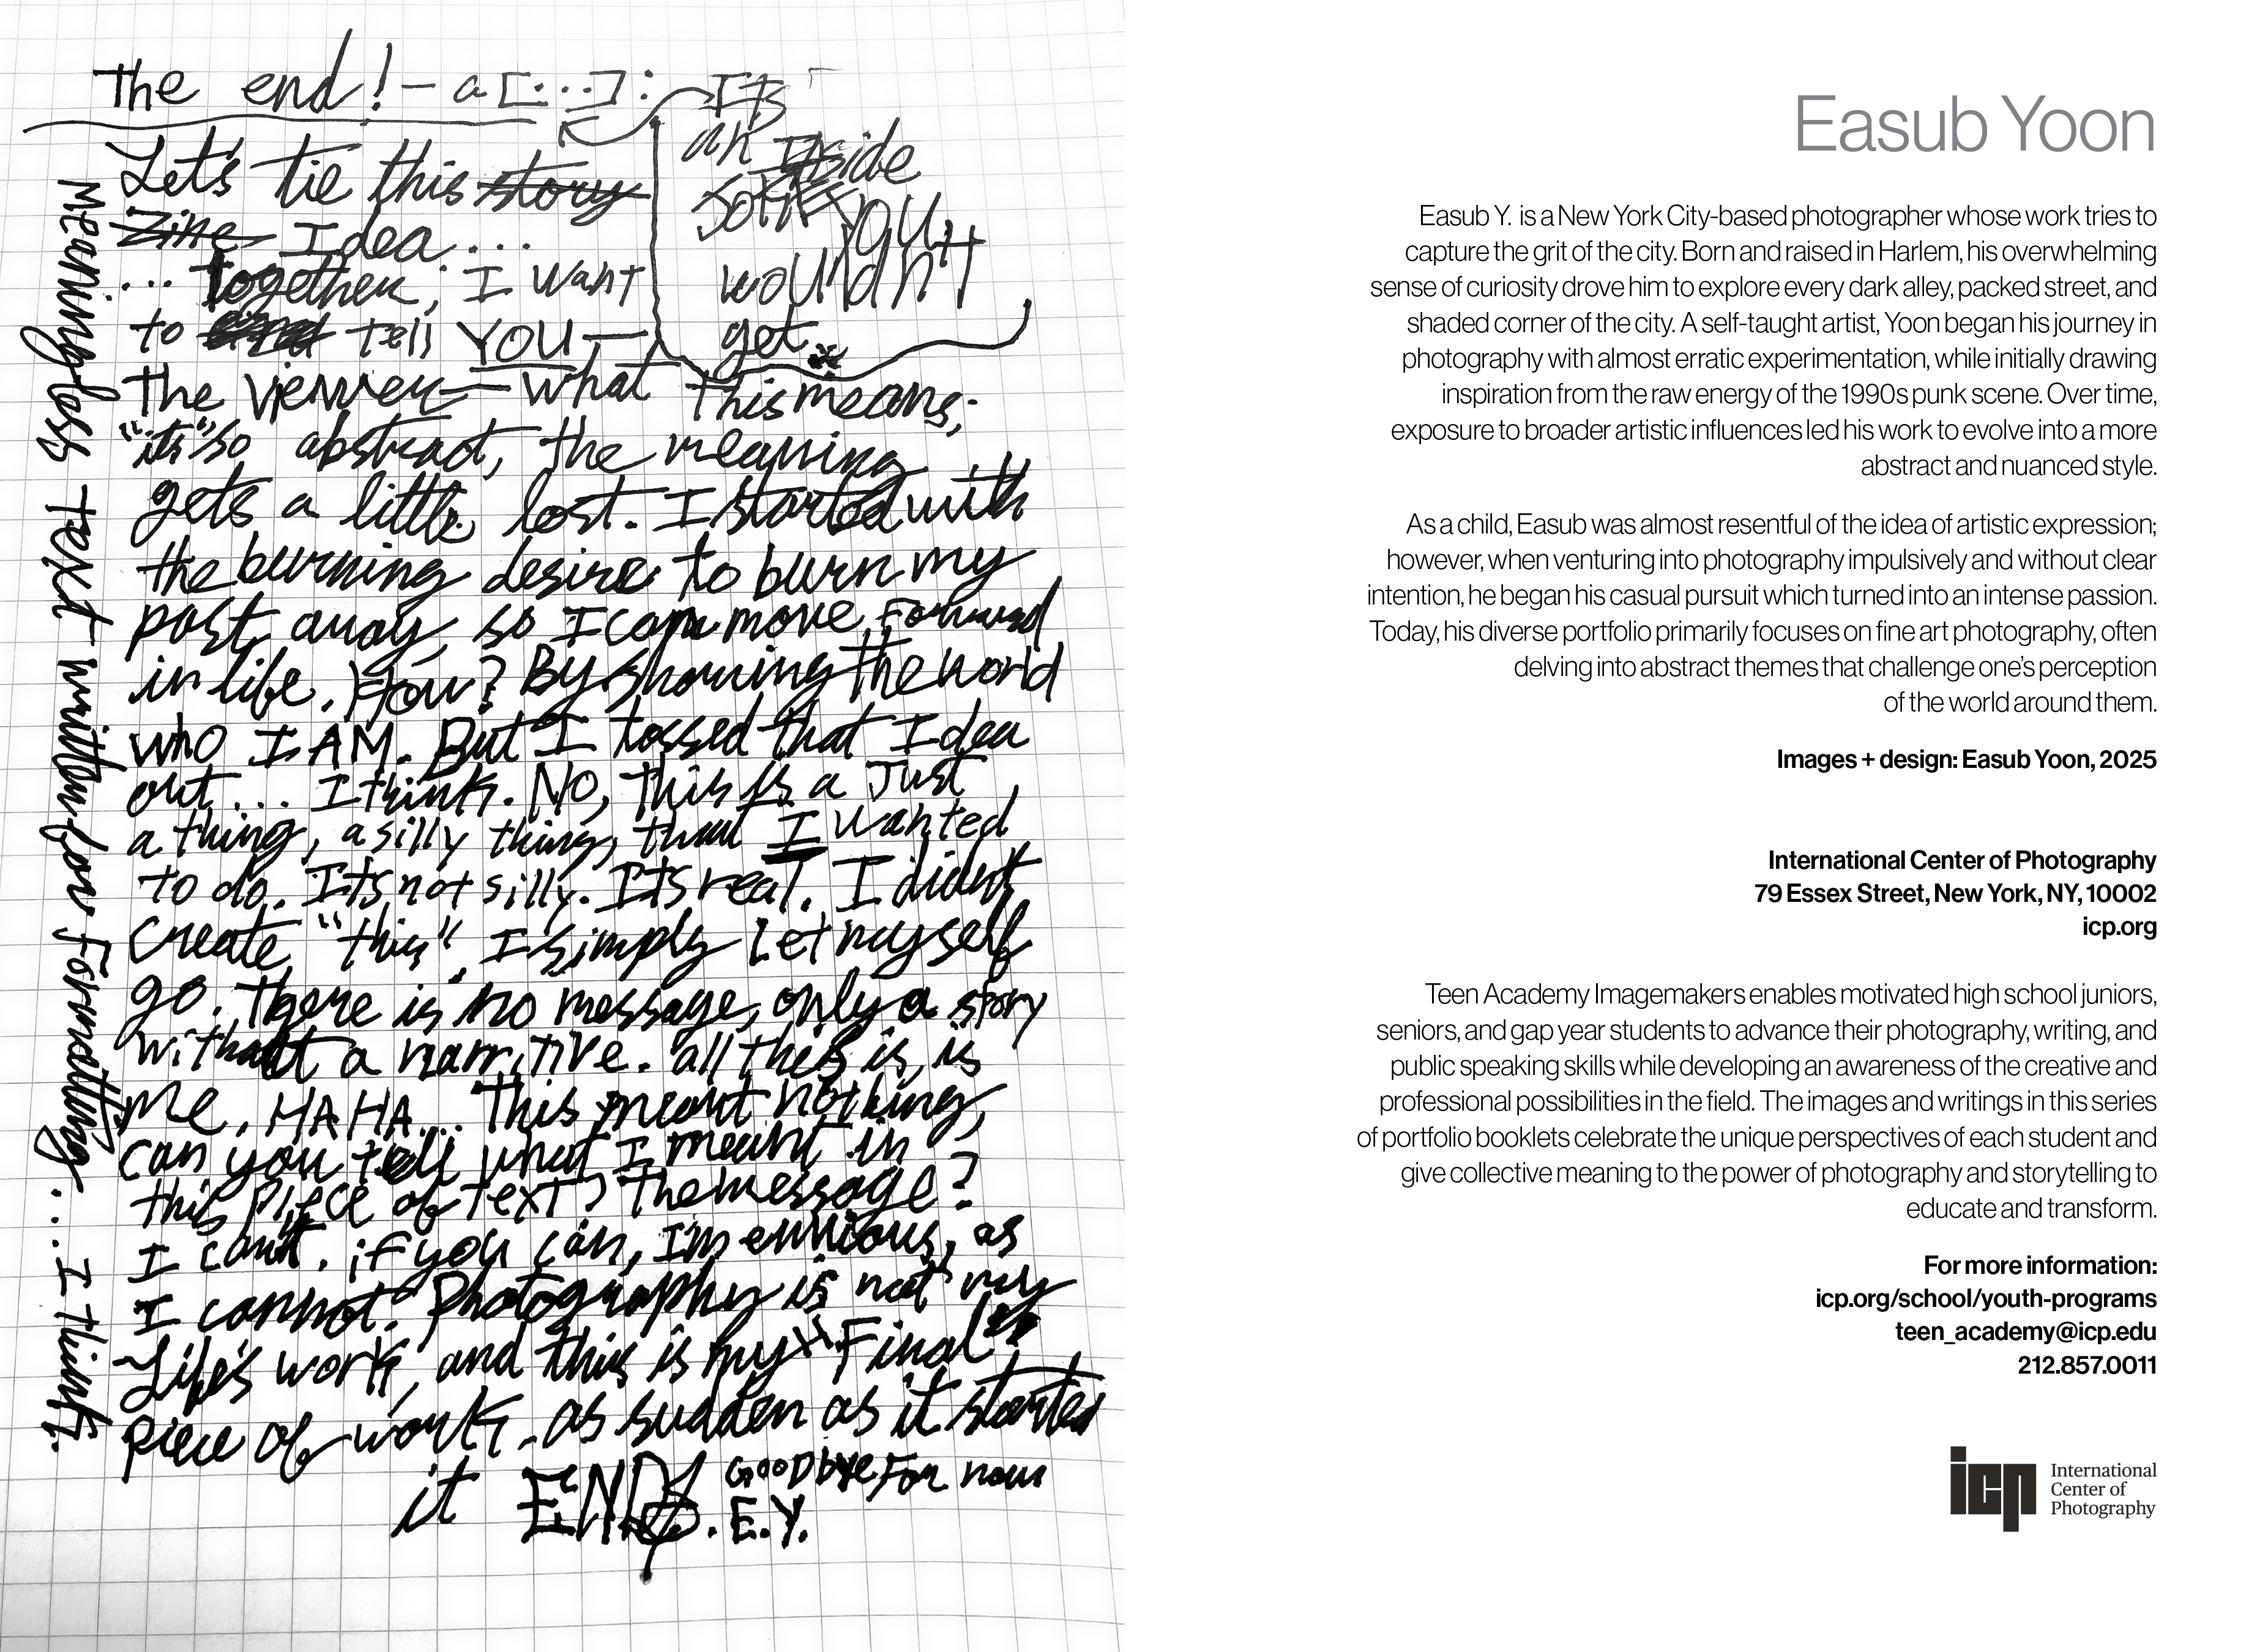 The end! - a [...]:
It's
an inside
joke you
wouldn't
get.
Let's tie this story
Zine Idea...
... together; I want
to tell YOU —
the viewer — what this means;
"it's" so abstract, the meaning
gets a little lost. I started with
the burning desire to burn my
past away, so I can move forward
in life. How? By showing the world
who I AM. But I tossed that Idea
out... I think. No, this is a Just
a thing, a silly thing, that I wanted
to do. It's not silly. It's real. I didn't
create "this". I simply let myself
go. There is no message, only a story
without a narritive. all this is, is
me. HAHA... This meant nothing,
can you tell what I meant in
this piece of text? The message?
I can't. if you can, I'm envious, as
I cannot. Photography is not my
Life's work, and this is my Final
piece of work. as sudden as it started
it ENDS. Goodbye For now
E.Y.
Meaningless text written for Formatting.... I think.
Easub Yoon
Easub Y. is a New York City-based photographer whose work tries to
capture the grit of the city. Born and raised in Harlem, his overwhelming
sense of curiosity drove him to explore every dark alley, packed street, and
shaded corner of the city. A self-taught artist, Yoon began his journey in
photography with almost erratic experimentation, while initially drawing
inspiration from the raw energy of the 1990s punk scene. Over time,
exposure to broader artistic influences led his work to evolve into a more
abstract and nuanced style.
As a child, Easub was almost resentful of the idea of artistic expression;
however, when venturing into photography impulsively and without clear
intention, he began his casual pursuit which turned into an intense passion.
Today, his diverse portfolio primarily focuses on fine art photography, often
delving into abstract themes that challenge one's perception
of the world around them.
Images + design: Easub Yoon, 2025
International Center of Photography
79 Essex Street, New York, NY, 10002
icp.org
Teen Academy Imagemakers enables motivated high school juniors,
seniors, and gap year students to advance their photography, writing, and
public speaking skills while developing an awareness of the creative and
professional possibilities in the field. The images and writings in this series
of portfolio booklets celebrate the unique perspectives of each student and
give collective meaning to the power of photography and storytelling to
educate and transform.
For more information:
icp.org/school/youth-programs
teen_academy@icp.edu
212.857.0011
icp
International
Center of
Photography